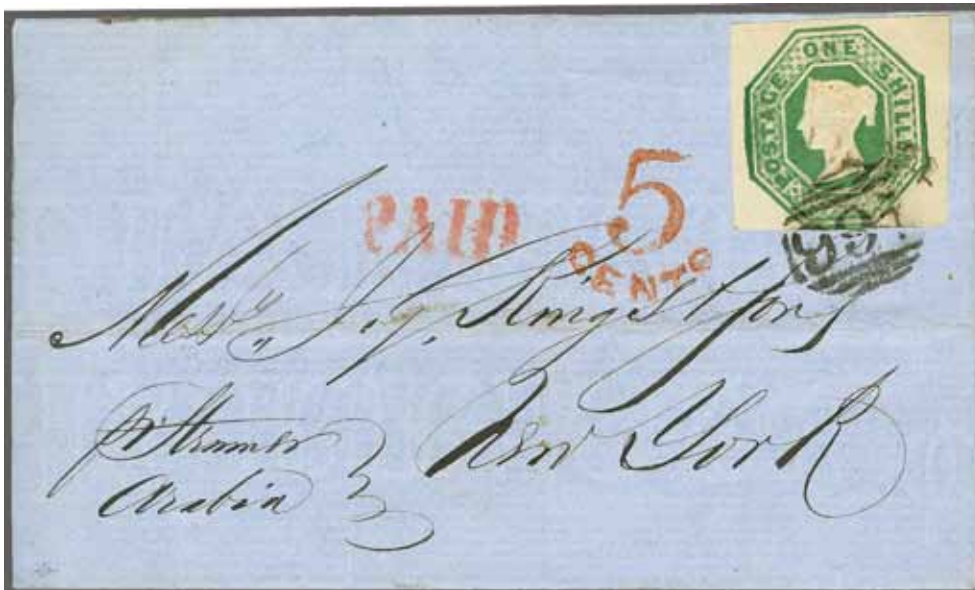 POSTAGE ONE SHILLING
PAID
5
CENTS
Messrs J. J. King & Sons
New York
pr Steamer
Arabia